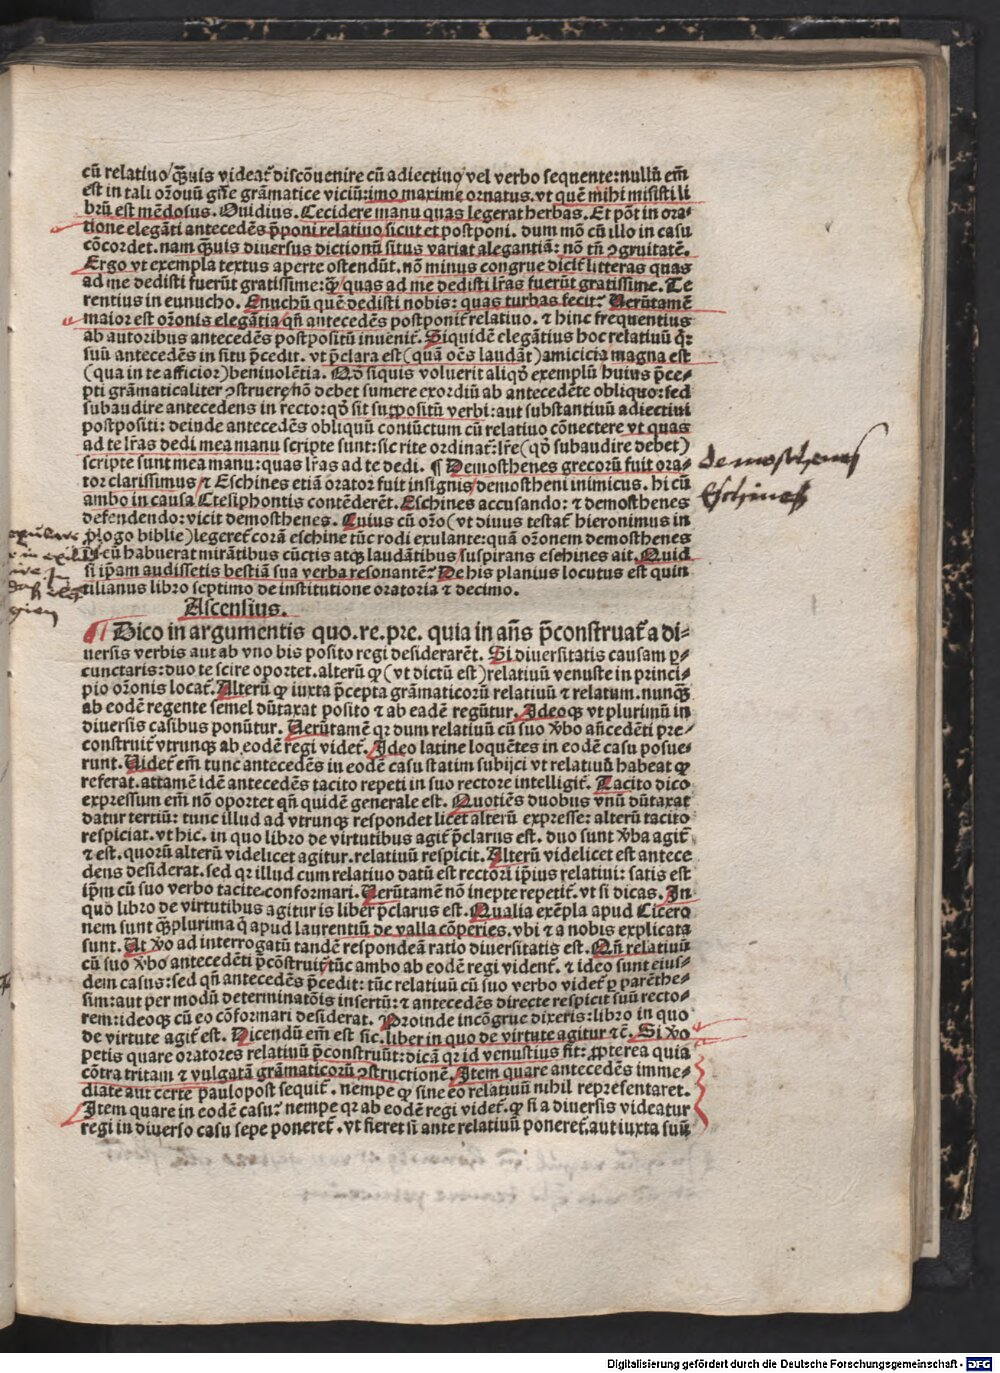 cū relatiuo/q̄uis videat̃ discōuenire cū adiectiuo/vel verbo sequente:nullū em̄
est in tali or̄onū gn̄e grāmatice viciū:imo maxime ornatus.vt quē mihi misisti li
brū est mēdosus. Ouidius. Cecidere manu quas legerat herbas. Et pōt in ora⸗
tione elegāti antecedēs p̄poni relatiuo sicut et postponi. dum mō cū illo in casu
cōcordet. nam q̄uis diuersus dictionū situs variat alegantiā: nō tn̄ ꝯgruitatē.
Ergo vt exempla textus aperte ostendūt. nō minus congrue dicit̃ litteras quas
ad me dedisti fuerūt gratissime: qͣ̄ quas ad me dedisti lr̄as fuerūt gratissime. Te
rentius in eunucho. Eunuchū quē dedisti nobis: quas turbas fecit? Uerūtamē
maior est or̄onis elegātia/qn̄ antecedēs postponit̃ relatiuo. ⁊ hinc frequentius
ab autoribus antecedēs postpositū inuenit̃. Siquidē elegātius hoc relatiuū q̄:
suū antecedēs in situ p̄cedit. vt p̄clara est (quā oēs laudāt) amicicia magna est
(qua in te afficior) beniuolētia. Qd̄ siquis voluerit aliqd̄ exemplū huius p̄ce⸗
pti grāmaticaliter ꝯstruere/nō debet sumere exordiū ab antecedēte obliquo:sed
subaudire antecedens in recto:qd̄ sit suppositū verbi: aut substantiuū adiectiui
postpositi: deinde antecedēs obliquū coniūctum cū relatiuo cōnectere vt quas
ad te lr̄as dedi mea manu scripte sunt: sic rite ordinat̃: lr̄e (qd̄ subaudire debet)
scripte sunt mea manu: quas lr̄as ad te dedi. ¶ Demosthenes grecorū fuit ora⸗
tor clarissimus/⁊ Eschines etiā orator fuit insignis/demostheni inimicus. hi cū
ambo in causa Ctesiphontis contēderēt. Eschines accusando: ⁊ demosthenes
defendendo: vicit demosthenes. Cuius cū or̄o (vt diuus testat̃ hieronimus in
ꝓlogo biblie) legeret̃ corā eschine tūc rodi exulante: quā or̄onem demosthenes
is cū habuerat mirātibus cūctis atqꝫ laudātibus/suspirans eschines ait. Quid
si ip̄am audissetis bestiā sua verba resonantē? De his planius locutus est quin
tilianus libro septimo de institutione oratoria ⁊ decimo.
demosthenes
Eschines
Ascensius.
¶ Dico in argumentis quo.re.pre. quia in an̄s p̄construat̃ a di⸗
uersis verbis aut ab vno bis posito regi desiderarēt. Si diuersitatis causam ꝑ⸗
cunctaris: duo te scire oportet. alterū ꝙ (vt dictū est) relatiuū venuste in princi⸗
pio or̄onis locat̃. Alterū ꝙ iuxta p̄cepta grāmaticorū relatiuū ⁊ relatum. nunq̄ꝫ
ab eodē regente semel dūtaxat posito ⁊ ab eadē regūtur. Adeoqꝫ vt plurimū in
diuersis casibus ponūtur. Uerūtamē qꝛ dum relatiuū cū suo v̄bo an̄cedēti pre⸗
construit̃ vtrunqꝫ ab eodē regi videt̃. Ideo latine loquētes in eodē casu posue⸗
runt. Uidet̃ em̄ tunc antecedēs in eodē casu statim subijci vt relatiuū habeat ꝙ
referat. attamē idē antecedēs tacito repeti in suo rectore intelligit̃. Tacito dico
expressum em̄ nō oportet qn̄ quidē generale est. Quotiēs duobus vnū dūtaxat
datur tertiū: tunc illud ad vtrunqꝫ respondet licet alterū expresse: alterū tacito
respiciat. vt hic. in quo libro de virtutibus agit̃ p̄clarus est. duo sunt v̄ba agit̃
⁊ est. quorū alterū videlicet agitur. relatiuū respicit. Alterū videlicet est antece
dens desiderat. sed qꝛ illud cum relatiuo datū est rectori ip̄ius relatiui: satis est
ip̄m cū suo verbo tacite conformari. Uerūtamē nō inepte repetit̃. vt si dicas. In
quo libro de virtutibus agitur is liber p̄clarus est. Qualia exēpla apud Cicero
nem sunt q̄plurima q̄ apud laurentiū de valla cōperies. vbi ⁊ a nobis explicata
sunt. Ut v̄o ad interrogatū tandē respondeā ratio diuersitatis est. Qn̄ relatiuū
cū suo v̄bo antecedēti p̄cōstruit̃/tūc ambo ab eodē regi vident̃. ⁊ ideo sunt eius⸗
dem casus: sed qn̄ antecedēs p̄cedit: tūc relatiuū cū suo verbo videt̃ ꝑ parēthe⸗
sim: aut per modū determinatōis insertū: ⁊ antecedēs directe respicit suū recto⸗
rem: ideoqꝫ cū eo cōformari desiderat. Proinde incōgrue dixeris: libro in quo
de virtute agit̃ est. Dicendū em̄ est sic. liber in quo de virtute agitur ⁊c̄. Si v̄o
petis quare oratores relatiuū p̄construūt: dicā qꝛ id venustius fit: ꝓpterea quia
cōtra tritam ⁊ vulgatā grāmaticorū ꝯstructionē. Item quare antecedēs imme⸗
diate aut certe paulopost sequit̃. nempe ꝙ sine eo relatiuū nihil representaret.
Item quare in eodē casu? nempe qꝛ ab eodē regi videt̃. ꝙ si a diuersis videatur
regi in diuerso casu sepe poneret̃. vt fieret si ante relatiuū poneret̃. aut iuxta suū
Digitalisierung gefördert durch die Deutsche Forschungsgemeinschaft - DFG